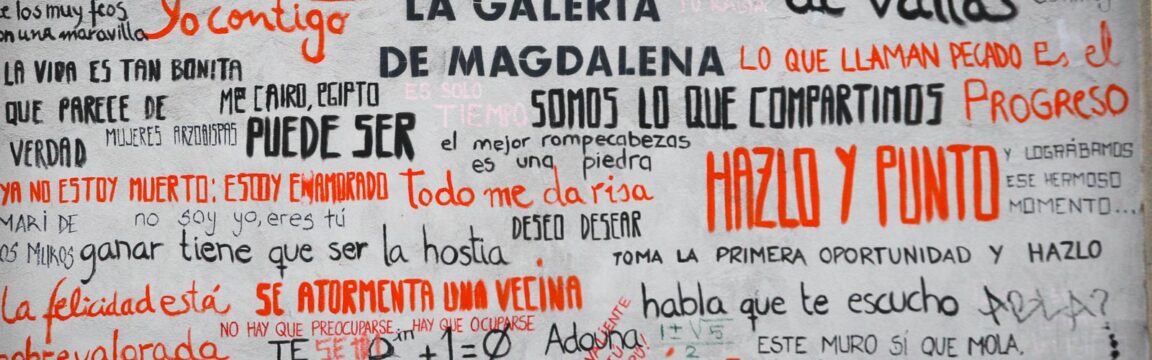 e los muy feos
on una maravilla
Yo contigo
LA GALERÍA
DE MAGDALENA
de vallas
LO QUE LLAMAN PECADO Es el
PROGRESO
LA VIDA ES TAN BONITA
QUE PARECE DE
VERDAD
ME CAIRO, EGIPTO
MUJERES ARZOBISPAS
PUEDE SER
ES SOLO
TIEMPO
SOMOS LO QUE COMPARTIMOS
el mejor rompecabezas
es una piedra
HAZLO Y PUNTO
Y LOGRÁBAMOS
ESE HERMOSO
MOMENTO...
YA NO ESTOY MUERTO: ESTOY ENAMORADO
Todo me da risa
MARI DE
OS MUROS
no soy yo, eres tú
DESEO DESEAR
ganar tiene que ser la hostia.
TOMA LA PRIMERA OPORTUNIDAD Y HAZLO
La felicidad está
obrevalorada
SE ATORMENTA UNA VECINA
habla que te escucho
NO HAY QUE PREOCUPARSE, HAY QUE OCUPARSE
TE SE
in + 1 = 0
Aduana
1 ± √5
2
ESTE MURO SÍ QUE MOLA.